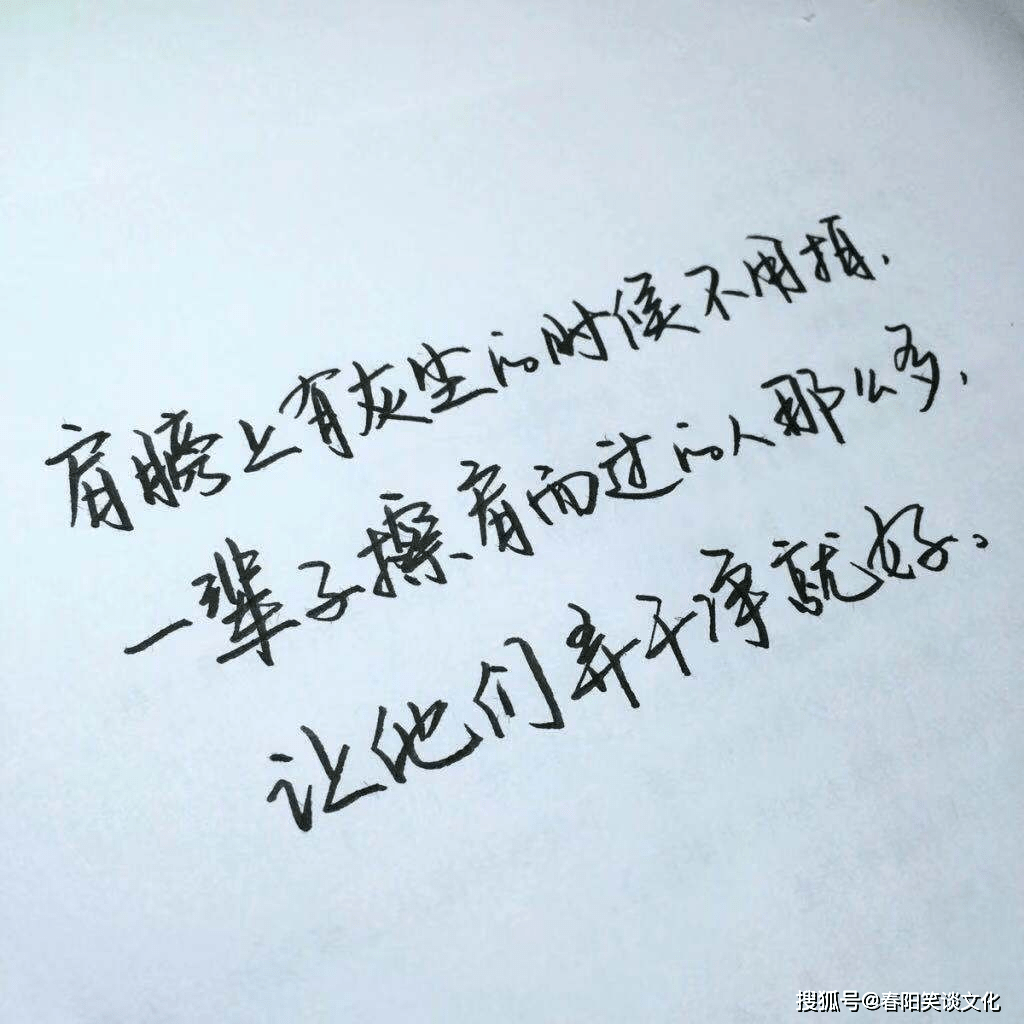 肩膀上有灰尘的时候不用拍.
一辈子擦肩而过的人那么多,
让他们弄干净就好。
搜狐号@春阳笑谈文化